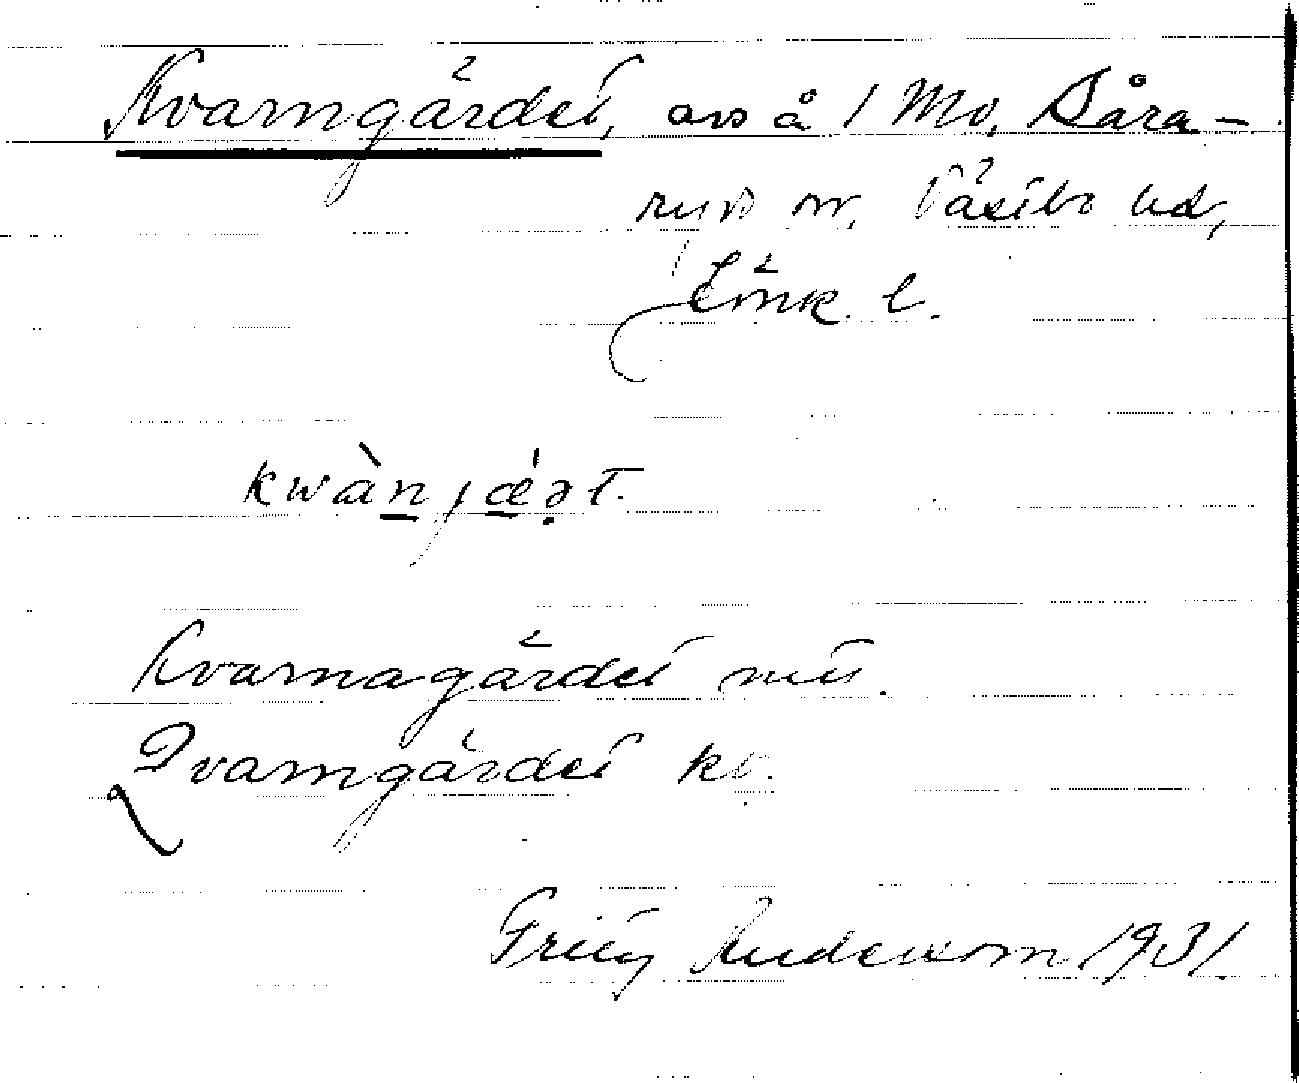 Kvarngärdet, avs å 1 Mo, Båra-
ryds sn, Västbo hd,
Jönk. l.
kwànjǽət.
Kvarnagärdet mtl.
Qvarngärdet kb.
Fritz Anderson 1931